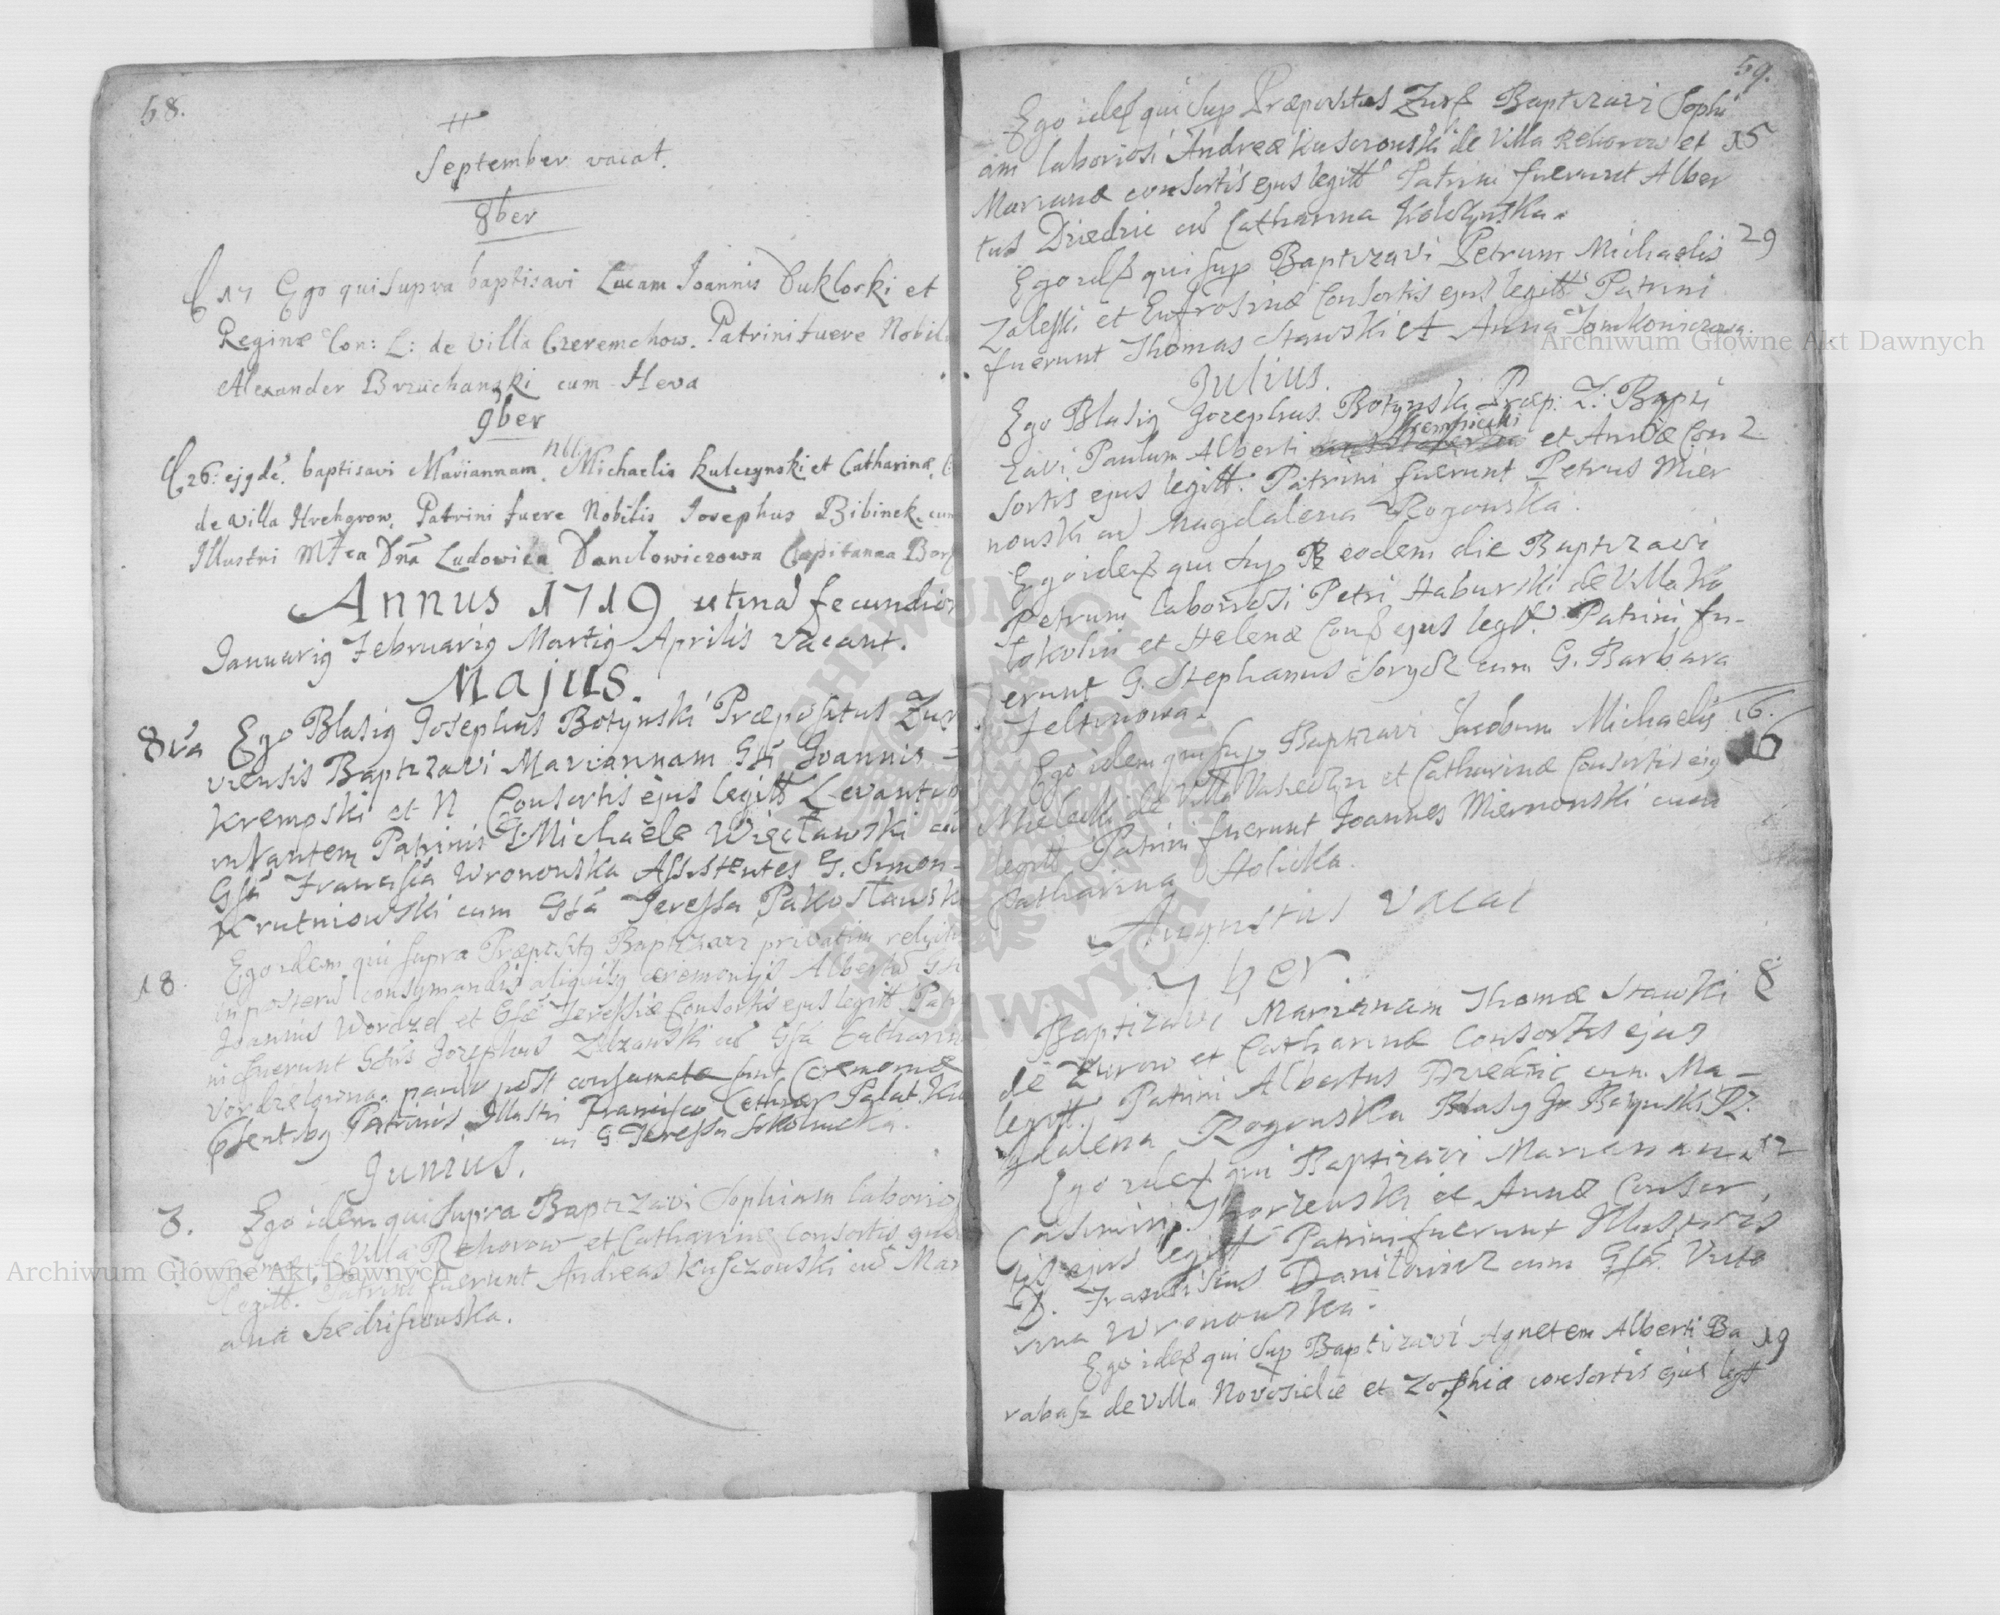 58.
September vacat.
8ber
17 Ego qui supra baptisavi Lucam Joannis Duklorki et
Reginæ Con: L: de villa Czeremchow. Patrini fuere Nobil
Alexander Brzuchanski cum Heva
9ber
26: ejgdē. baptisavi Mariannam Nblis Michaelis Kulczynski et Catharinæ
de villa Hrehgrow, Patrini fuere Nobilis Josephus Bibinek cum
Illustri Dnā Ludovica Danclowiczowa Capitanea
Annus 1719 utinā fecundior
Januarig Februarig Martig Aprilis vacant.
Majus.
8va Ego Blasig Josephus Botynski Præpositus Zur
viensis Baptizavi Mariannam Gsi Joannis
Krempski et N Consortis ejus legitt Levantib
infantem Patrinis G. Michaele Więcławski cū
Gsa Francisca Wronowska Assistentes G. Simon
Krutniowski cum Gsa Teressa Pakosławsk
18. Ego idem qui supra Præpositg Baptizavi privatim
in posterū consumandis aliquibg ceremonijs Albertū
Joannis Wordzel et Gsæ Teressiæ Consortis ejus legitt Patr
ni fuerunt Gsus Josephus cū Gsa Catharin
paulo post consumatæ sunt Ceremoniæ
Patrinis Illustri Francisco Palat.
cū G Teressa
Junius.
3. Ego idem qui supra Baptizavi Sophiam laborios
de Villa Rehorow et Catharinæ Consortis
legitt. Patrini fuerunt Andreas Kusczowski cū Mar
anna
59.
Ego idē qui sup Præpositus Zurs Baptizavi Sophi
am laboriosi Andreæ Kusczowski de Villa Rehorow et 15
Marianæ consortis ejus legitt Patrini fuerunt Alber
tus Dziedzic cū Catharina
Ego idē qui sup Baptizavi Petrum Michaelis 29
Zaleski et Eufrosinæ Consortis ejus legitt Patrini
fuerunt Thomas Stawski et Anna Tomkowiczowa.
Julius.
Ego Blasig Josephus Botynski Præp: Z: Bapti
zavi Paulum Alberti et Annæ Con 2
sortis ejus legitt: Patrini fuerunt Petrus Mier
nowski cū Magdalena Rogowska.
Ego idē qui sup eodem die Baptizavi
Petrum laboriosi Petri Haburski de Villa Ko
cokolin et Helenæ Cons ejus legtt. Patrini fu-
erunt G. Stephanus cum G. Barbara
Ego idem qui sup Baptizavi Jacobum Michaelis 16.
de Villa et Catharinæ Consortis ejg
legitt Patrini fuerunt Joannes Miernowski cum
Catharina Holicka.
Augustus vacat
7ber.
Baptizavi Mariannam Thomæ Stawski 8
de Zurow et Catharinæ Consortis ejus
legitt. Patrini Albertus Dziedzic cum Ma-
gdalena Rogowska Blasig Jo Botynski PZ.
Ego idē qui Baptizavi Mariannam 12
Casimiri et Annæ Consor
tis ejus legitt Patrini fuerunt Illustris
D. Franciscus Daniłowicz cum Gsa.
Wronowska.
Ego idē qui sup Baptizavi Agnetem Alberti Ba 19
rabasz de Villa Novosielce et Zophiæ consortis ejus legtt
Archiwum Główne Akt Dawnych
Archiwum Główne Akt Dawnych